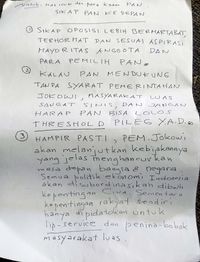 PAN
SIKAP PAN KE DEPAN
① SIKAP OPOSISI LEBIH BERMARTABAT,
TERHORMAT DAN SESUAI ASPIRASI
MAYORITAS ANGGOTA DAN
PARA PEMILIH PAN.
② KALAU PAN MENDUKUNG
TANPA SYARAT PEMERINTAHAN
JOKOWI, MASYARAKAT LUAS
SANGAT SINIS, DAN JANGAN
HARAP PAN BISA LOLOS
THRESHOLD PILEG YA.D.
③ HAMPIR PASTI, PEM. JOKOWI
akan melanjutkan kebijakannya
yang jelas menghancurkan
masa depan bangsa & negara
Semua politik ekonomi Indonesia
akan disubordinasikan dibawah
kepentingan Cina. Sementara
kepentingan rakyat sendiri
hanya dipidatokan untuk
lip-service dan penina-bobok
masyarakat luas.